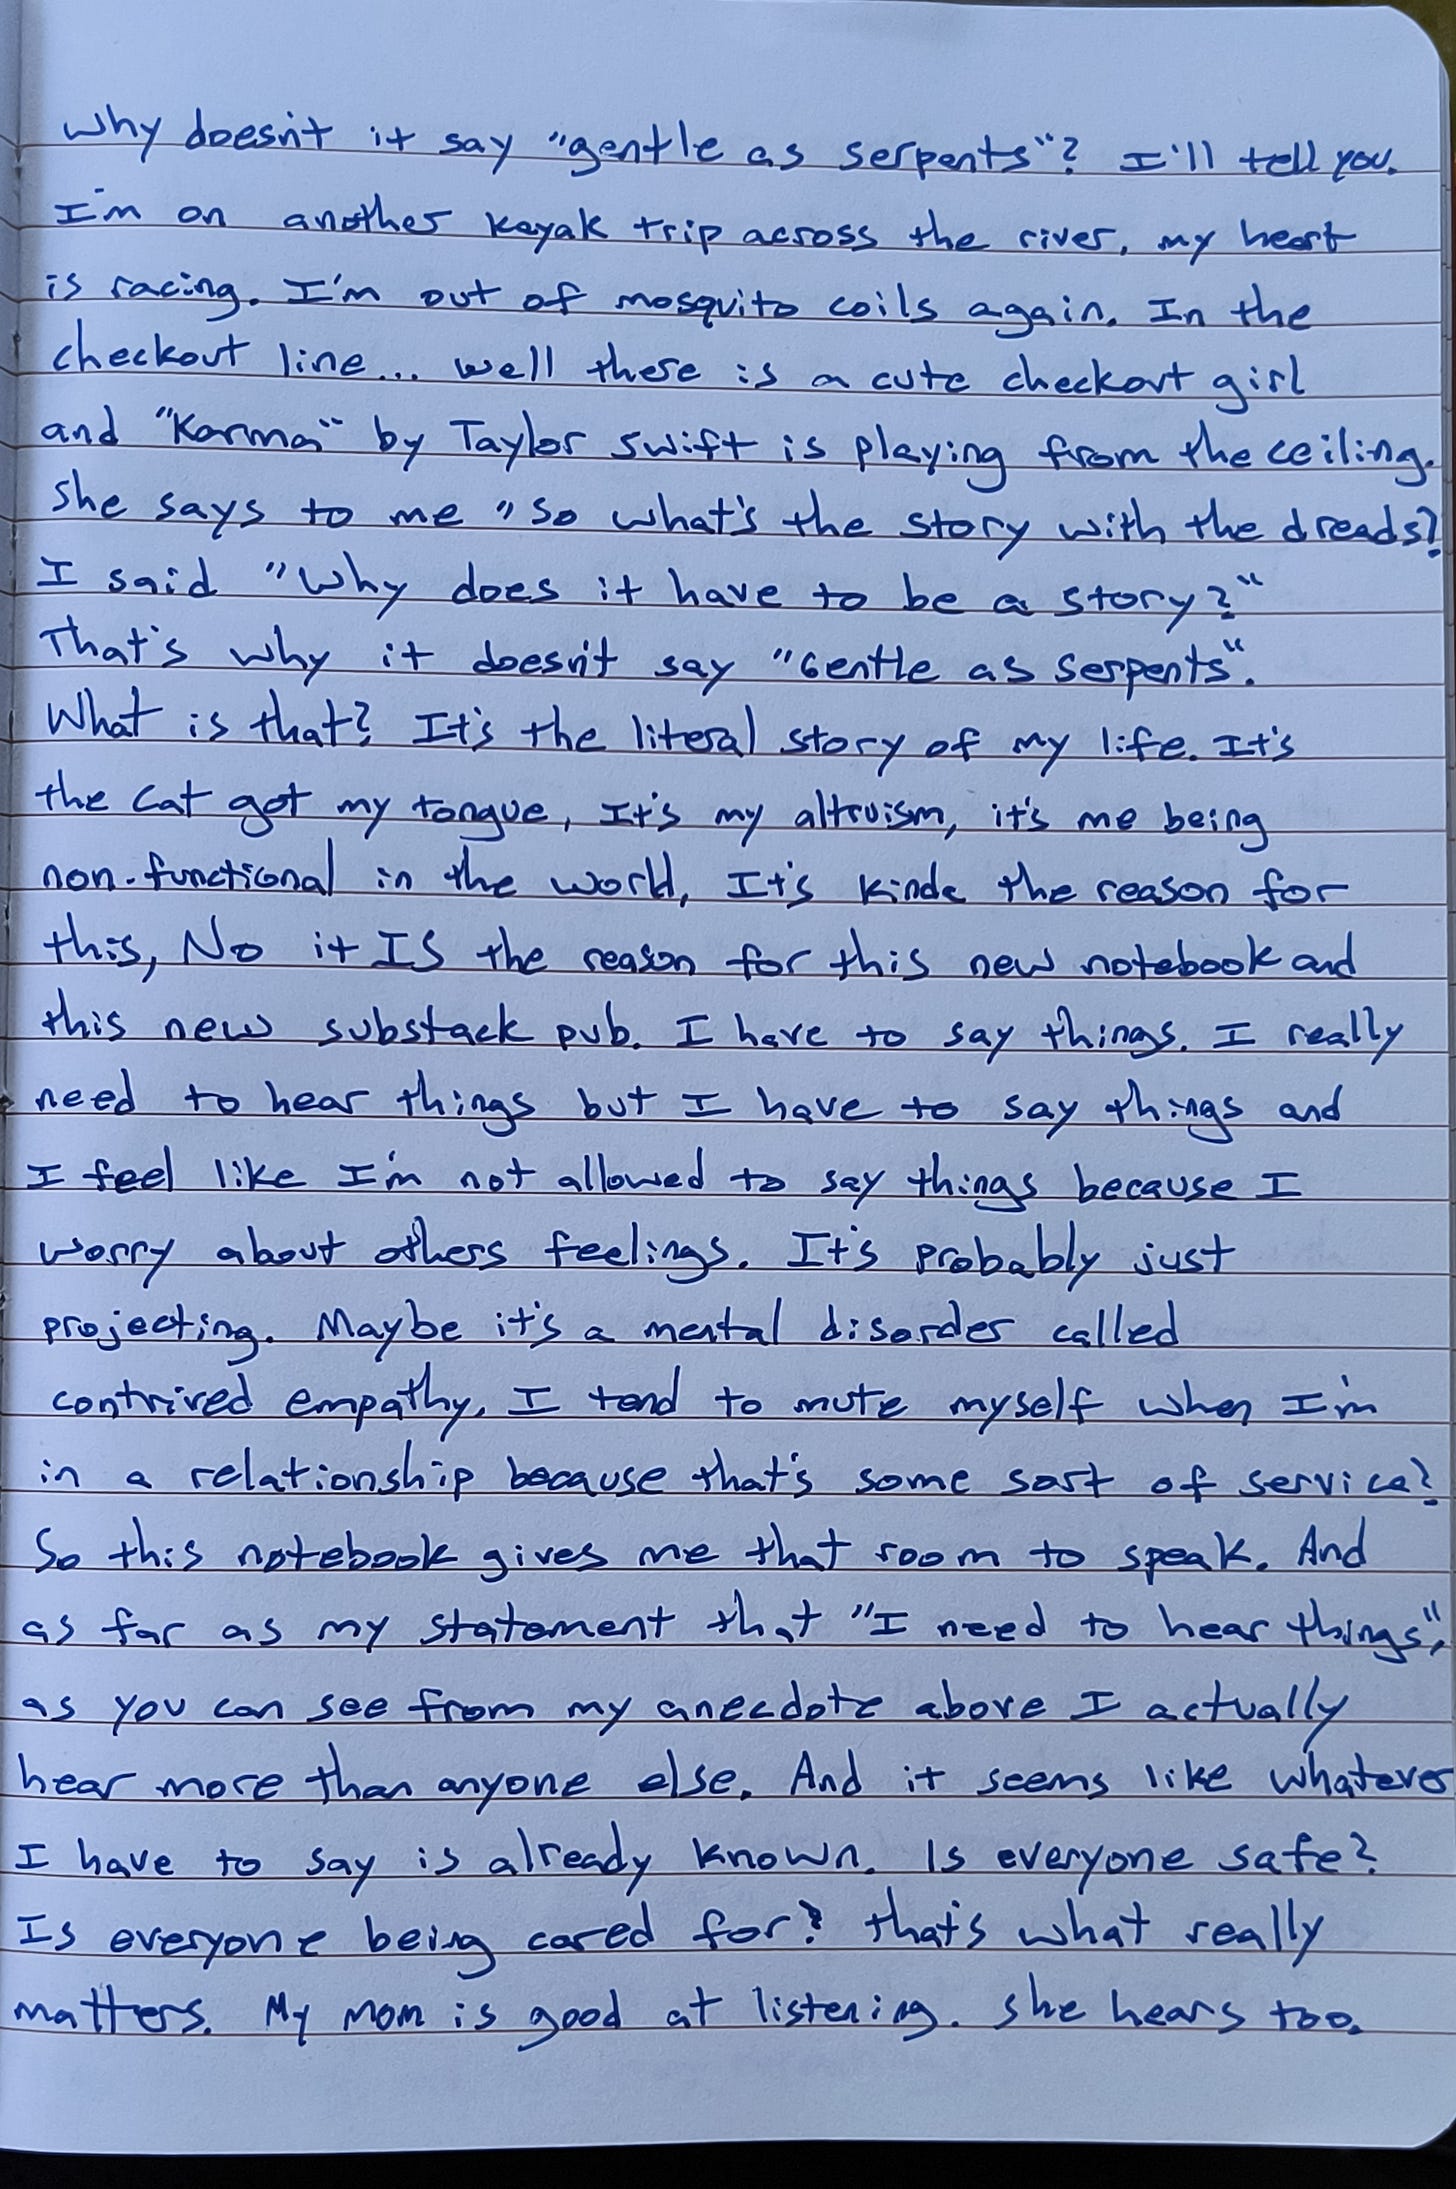 Why doesn't it say "gentle as serpents"? I'll tell you.
I'm on another kayak trip across the river, my heart
is racing. I'm out of mosquito coils again. In the
checkout line... well there is a cute checkout girl
and "Karma" by Taylor Swift is playing from the ceiling.
She says to me "So what's the story with the dreads?
I said "Why does it have to be a story?"
That's why it doesn't say "Gentle as serpents".
What is that? It's the literal story of my life. It's
the cat got my tongue, It's my altruism, it's me being
non-functional in the world, It's kinda the reason for
this, No it IS the reason for this new notebook and
this new substack pub. I have to say things. I really
need to hear things but I have to say things and
I feel like I'm not allowed to say things because I
worry about others feelings. It's probably just
projecting. Maybe it's a mental disorder called
contrived empathy. I tend to mute myself when I'm
in a relationship because that's some sort of service?
So this notebook gives me that room to speak. And
as far as my statement that "I need to hear things",
as you can see from my anecdote above I actually
hear more than anyone else. And it seems like whatever
I have to say is already known. Is everyone safe?
Is everyone being cared for? that's what really
matters. My mom is good at listening. She hears too.